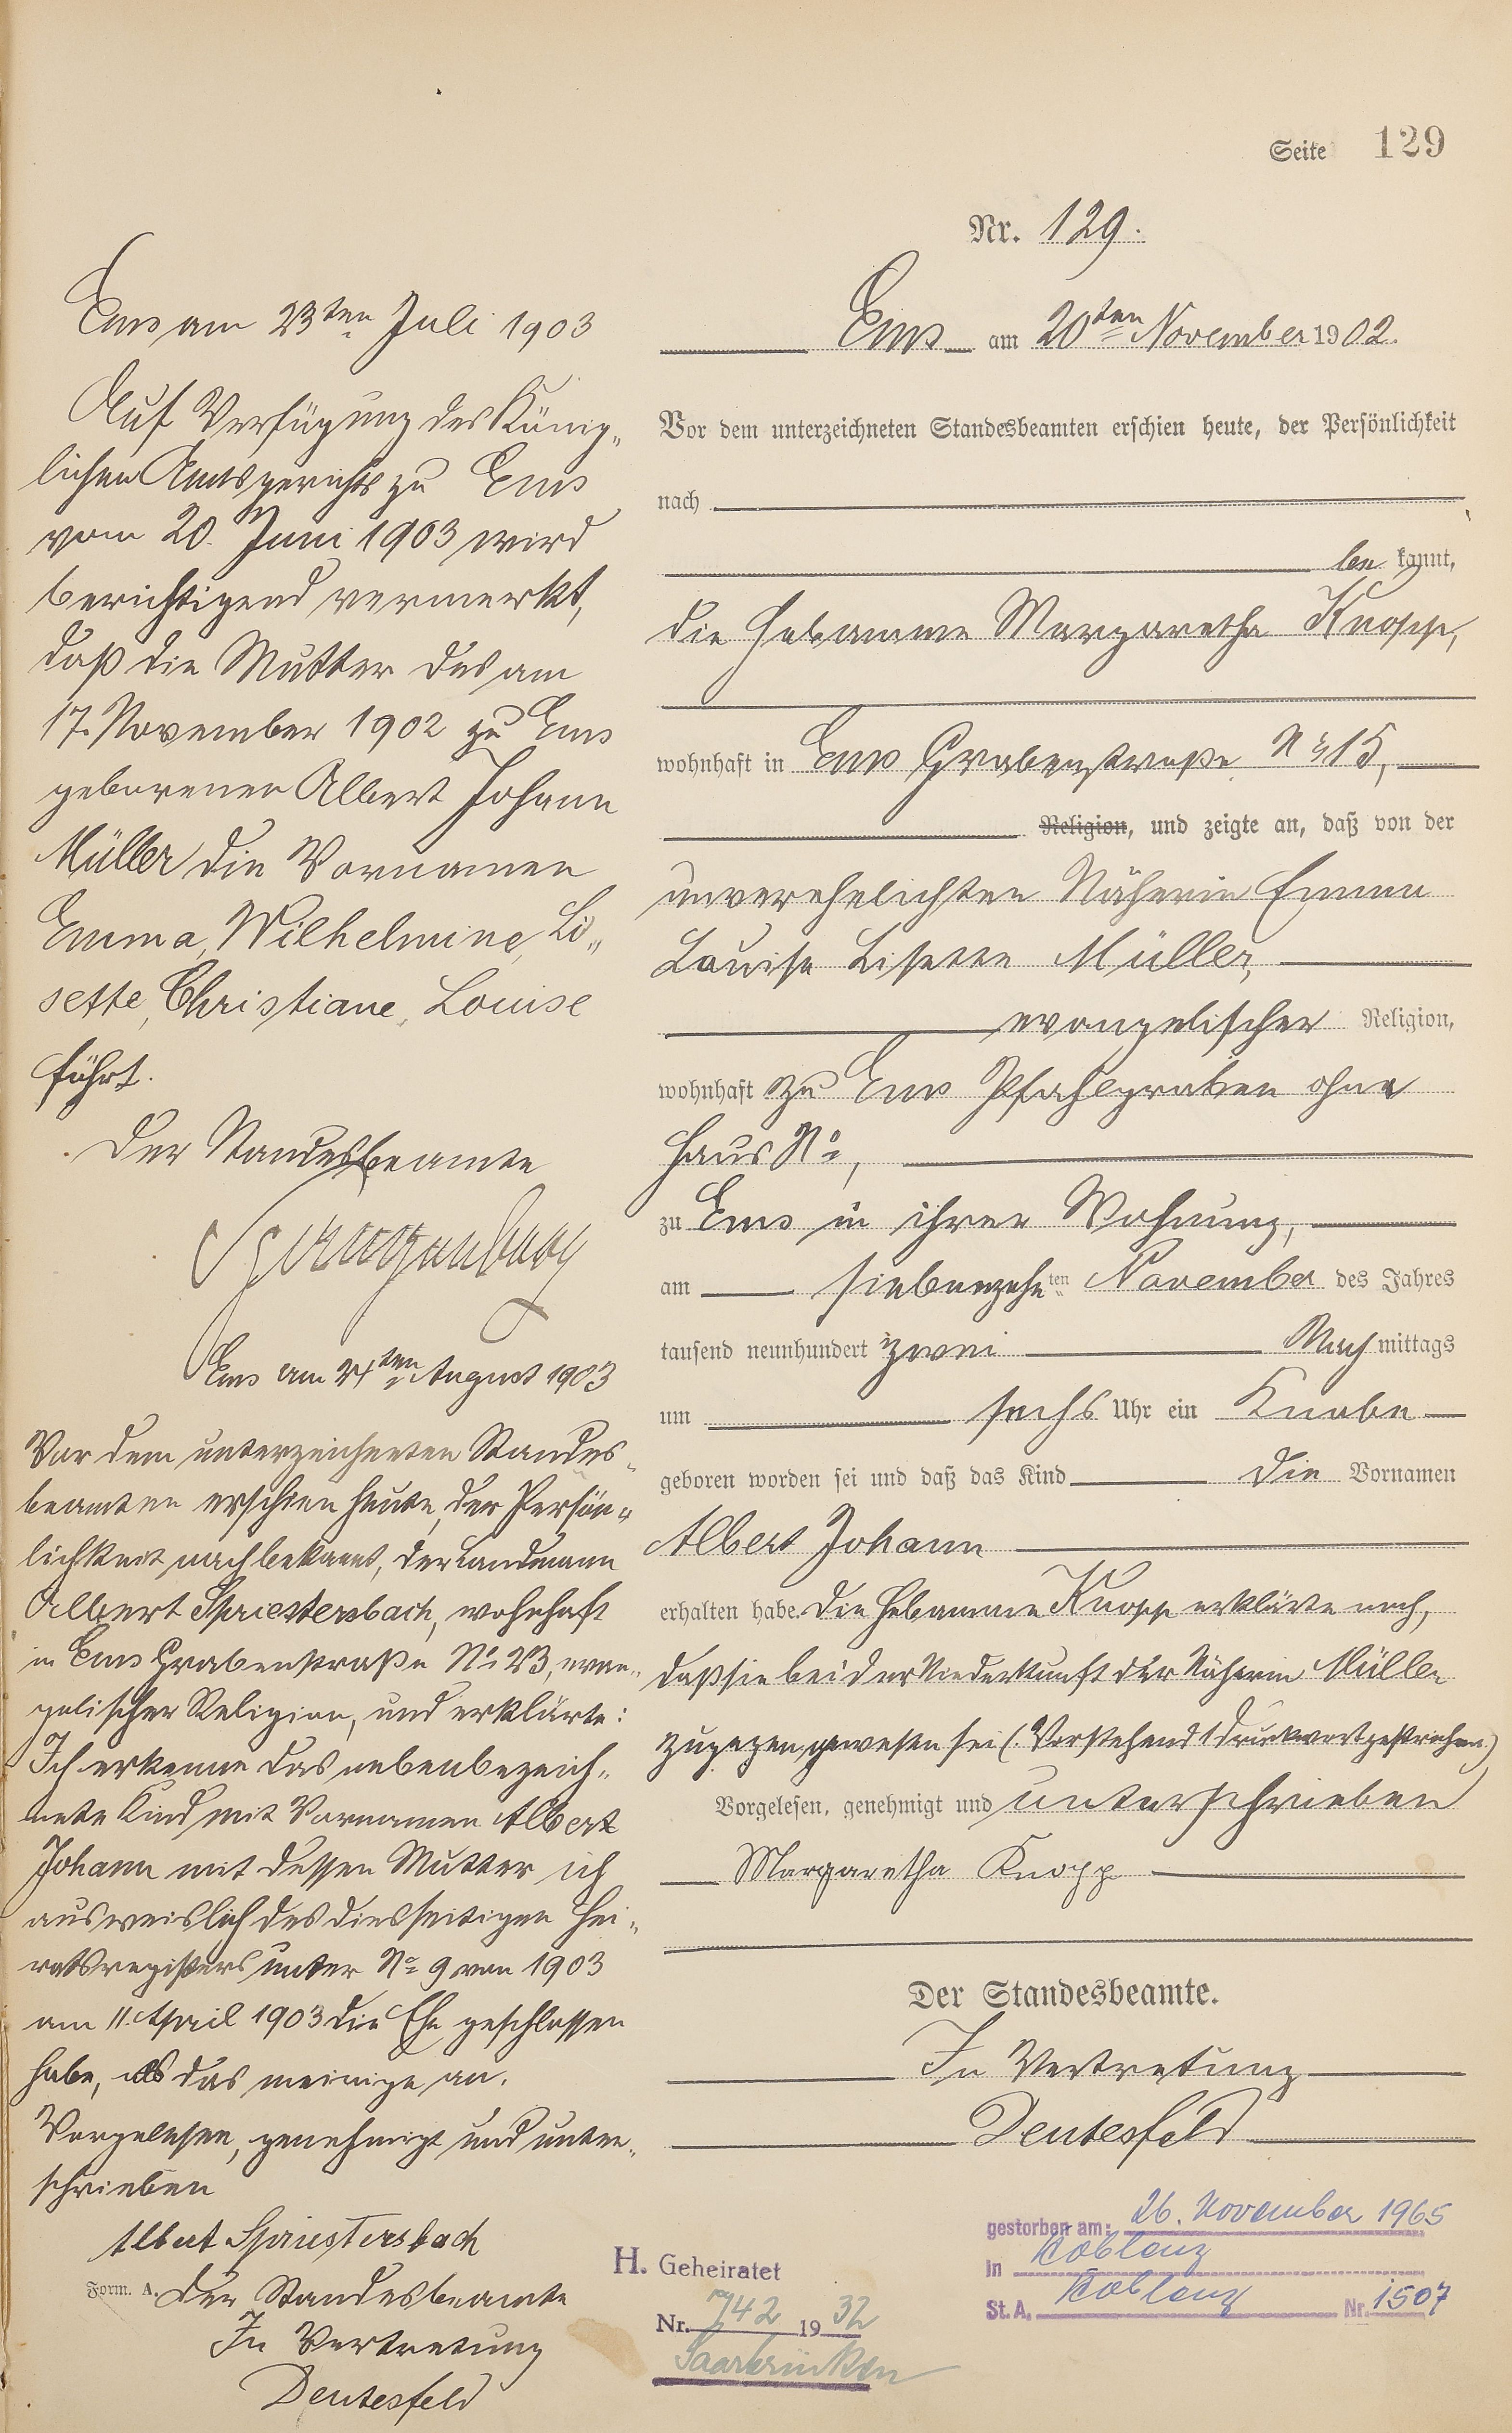 Seite 129
Nr. 129.
Ems am 20ten November 1902.
Vor dem unterzeichneten Standesbeamten erschien heute, der Persönlichkeit
nach
be kannt,
die Hebamme Margaretha Knopp,
wohnhaft in Ems Grabenstraße No 15,
Religion, und zeigte an, daß von der
unverehelichten Näherin Emma
Louise Lisette Müller,
evangelischer Religion,
wohnhaft zu Ems Pfahlgraben ohne
Haus No,
zu Ems in ihrer Wohnung,
am siebenzehnten November des Jahres
tausend neunhundert zwei Nach mittags
um sechs Uhr ein Knabe
geboren worden sei und daß das Kind die Vornamen
Albert Johann
erhalten habe. Die Hebamme Knopp erklärte noch,
daß sie bei der Niederkunft der Näherin Müller
zugegen gewesen sei (Vorstehend 1 Druckwort gestrichen)
Vorgelesen, genehmigt und unterschrieben
Margaretha Knopp
Der Standesbeamte.
In Vertretung
Deutesfeld
Ems am 23ten Juli 1903
Auf Verfügung des König„
lichen Amtsgerichts zu Ems
vom 20. Juni 1903 wird
berichtigend vermerkt,
daß die Mutter des am
17. November 1902 zu Ems
geborenen Albert Johann
Müller die Vornamen
Emma, Wilhelmine, Li„
sette, Christiane, Louise
führt.
Der Standesbeamte
Ems am 24ten August 1903
Vor dem unterzeichneten Standes„
beamten erschien heute, der Persön„
lichkeit nach bekannt, der Landmann
Albert Spriestersbach, wohnhaft
in Ems Grabenstraße No 23, evan„
gelischer Religion, und erklärte:
Ich erkenne das nebenbezeich„
nete Kind mit Vornamen Albert
Johann mit dessen Mutter ich
ausweislich des diesseitigen Hei„
ratsregisters unter No 9 von 1903
am 11. April 1903 die Ehe geschlossen
habe, als das meinige an.
Vorgelesen, genehmigt und unter„
schrieben
Albert Spriestersbach
Form. A.
Der Standesbeamte
In Vertretung
Deutesfeld
H. Geheiratet
Nr. 742 1932
Saarbrücken
gestorben am: 26. November 1965
in Koblenz
St. A. Koblenz Nr. 1507